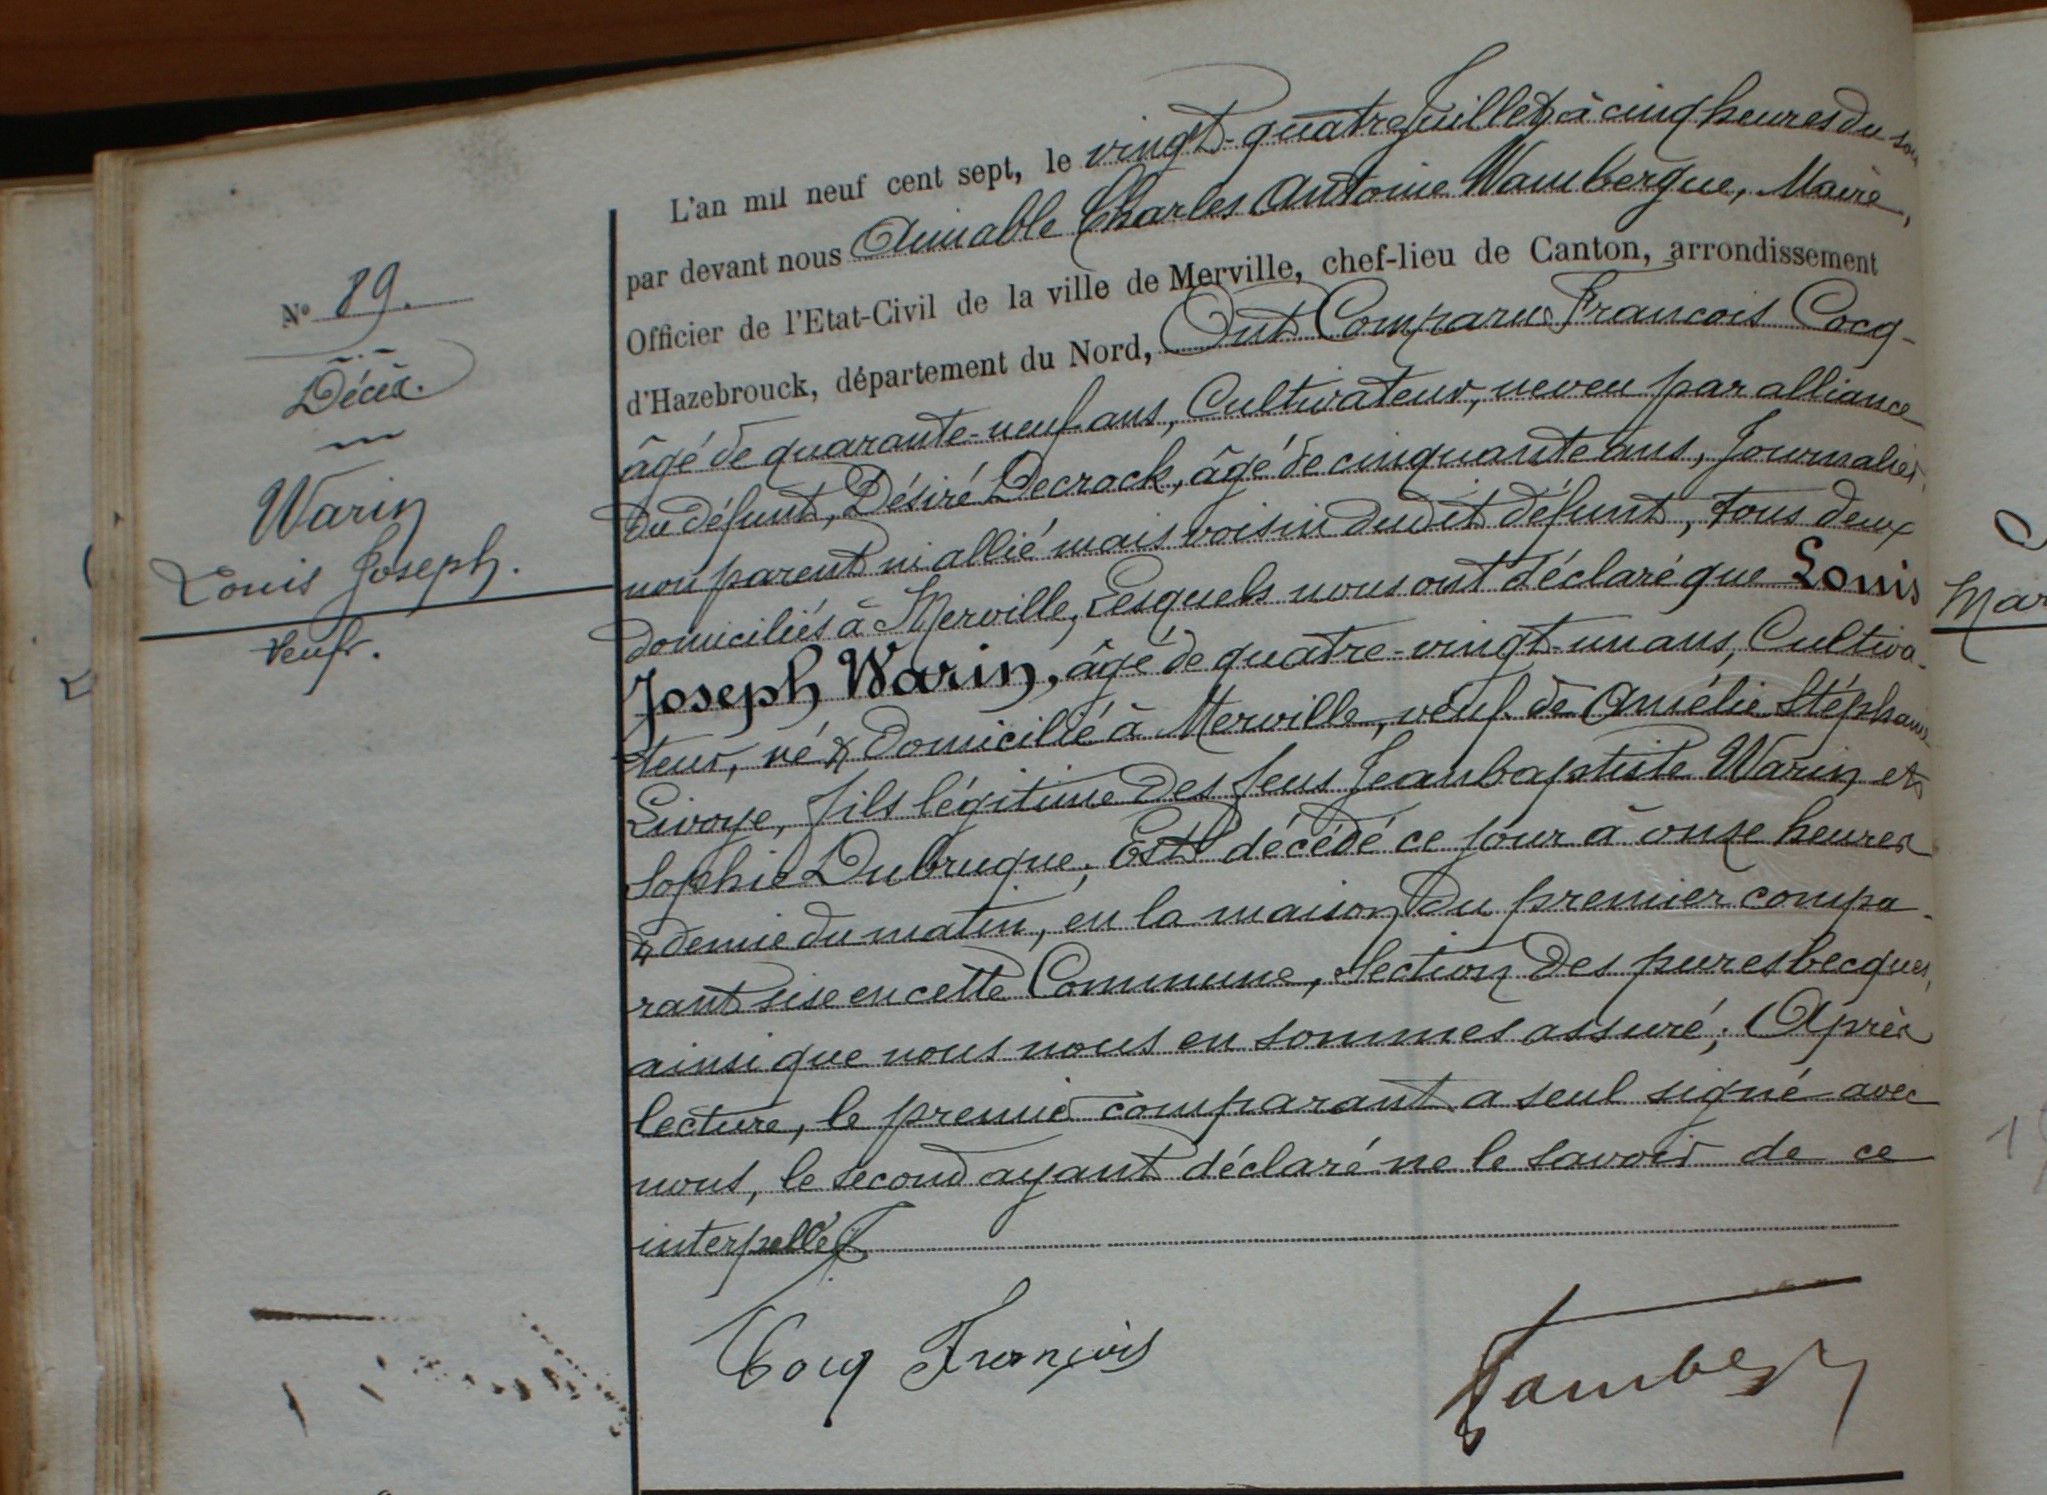 N° 89.
Décès.
Warin
Louis Joseph.
Veuf.
L'an mil neuf cent sept, le vingt-quatre Juillet à cinq heures du soir
par devant nous Aimable Charles Antoine Wambergue, Maire,
Officier de l'Etat-Civil de la ville de Merville, chef-lieu de Canton, arrondissement
d'Hazebrouck, département du Nord, Ont Comparu François Cocq
âgé de quarante-neuf ans, Cultivateur, neveu par alliance
du défunt, Désiré Decrock, âgé de cinquante ans, Journalier,
non parent ni allié mais voisin dudit défunt, tous deux
domiciliés à Merville, Lesquels nous ont déclaré que Louis
Joseph Warin, âgé de quatre-vingt-un ans, Cultiva-
teur, né & domicilié à Merville, veuf de Amélie Stéphanie
Livoye, fils légitime des feus Jeanbaptiste Warin et
Sophie Dubruque; Est décédé ce jour à onze heures
& demie du matin, en la maison du premier compa-
rant sise en cette Commune, Section des puresbecques,
ainsi que nous nous en sommes assuré; Après
lecture, le premier comparant a seul signé avec
nous, le second ayant déclaré ne le savoir de ce
interpellé
Cocq François
Mar